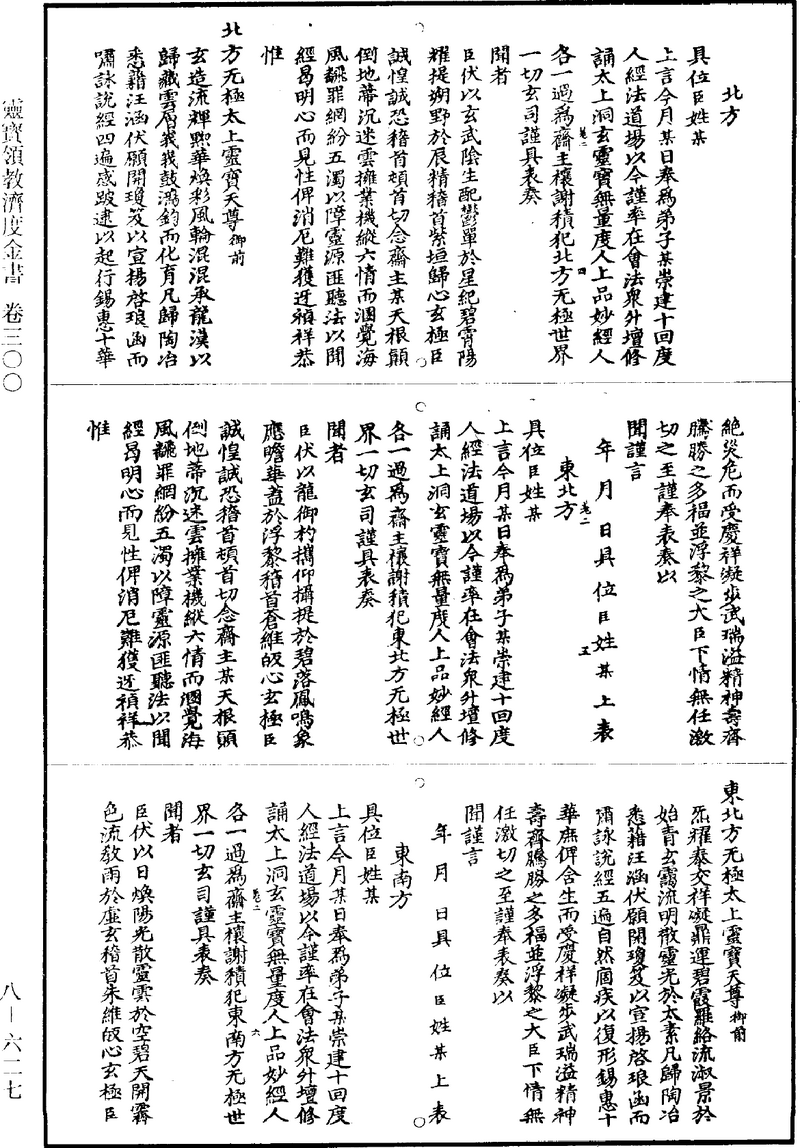 北方
具位臣姓某
上言今月某日奉爲弟子某崇建十回度
人經法道場以今謹率在會法衆升壇修
誦太上洞玄靈寶無量度人上品妙經人
各一過爲齋主禳謝積犯北方无極世界
一切玄司謹具表奏
聞者
臣伏以玄武陰生配鬱單於星紀碧霄陽
耀提朔野於辰精稽首紫垣歸心玄極臣
誠惶誠恐稽首頓首切念齋主某天根顚
倒地蒂沉迷雲擁業機縱六情而溷覺海
風飜罪網紛五濁以障靈源匪聽法以聞
經曷明心而見性俾消厄難獲迓禎祥恭
惟
北方无極太上靈寶天尊御前
玄造流輝熙華煥彩風輪混混承龍漢以
歸藏雲層峩峩鼓鴻鈞而化育凡歸陶冶
悉藉汪涵伏願開瓊笈以宣揚啓琅函而
嘯詠說經四遍感跛逮以起行錫惠十華
絶災危而受慶祥凝步武瑞溢精神壽齊
騰勝之多福並浮黎之大臣下情無任激
切之至謹奉表奏以
聞謹言
年月日具位臣姓某上表
東北方
具位臣姓某
上言今月某日奉爲弟子某崇建十回度
人經法道場以今謹率在會法衆升壇修
誦太上洞玄靈寶無量度人上品妙經人
各一過爲齋主禳謝積犯東北方无極世
界一切玄司謹具表奏
聞者
臣伏以龍御杓攜仰攝提於碧落鳳鳴象
應瞻華蓋於浮黎稽首蒼維皈心玄極臣
誠惶誠恐稽首頓首切念齋主某天根顚
倒地蒂沉迷雲擁業機縱六情而溷覺海
風飜罪網紛五濁以障靈源匪聽法以聞
經曷明心而見性俾消厄難獲迓禎祥恭
惟
東北方无極太上靈寶天尊御前
炁耀泰交祥凝鼎運碧霞羅絡流淑景於
始青玄靄流明散靈光於太素凡歸陶冶
悉藉汪涵伏願開瓊笈以宣揚啓琅函而
嘯詠說經五遍自然痼疾以復形錫惠十
華庶俾含生而受慶祥凝步武瑞溢精神
壽齊騰勝之多福並浮黎之大臣下情無
任激切之至謹奉表奏以
聞謹言
年月日具位臣姓某上表
東南方
具位臣姓某
上言今月某日奉爲弟子某崇建十回度
人經法道場以今謹率在會法衆升壇修
誦太上洞玄靈寶無量度人上品妙經人
各一過爲齋主禳謝積犯東南方无極世
界一切玄司謹具表奏
聞者
臣伏以日煥陽光散靈雲於空碧天開霽
色流敎雨於虛玄稽首朱維皈心玄極臣
卷二
四
卷二
五
卷二
六
靈寶領教濟度金書 卷三〇〇
八—六二七